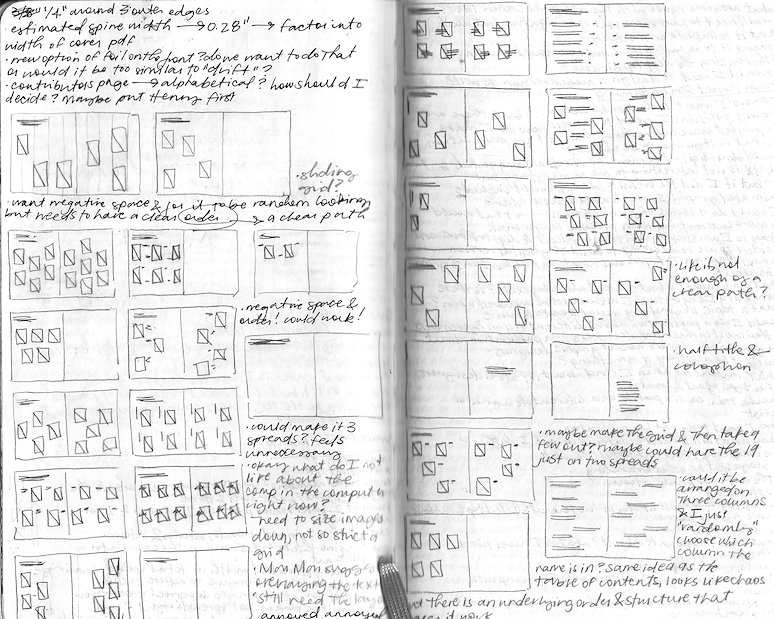 3/8" 1/4" around 3 outer edges
• estimated spine width → 0.28" → factor into
width of cover pdf
• new option of foil on the front? done want to do that
or would it be too similar to "drift"?
• contributors page → alphabetical? how should I
decide? maybe put Henry first
• sliding
grid?
• want negative space & for it to be random looking
but needs to have a clear order → a clear path
• negative space &
order! could work!
• could make it 3
spreads? feels
unnecessary
• okay what do I not
like about the
comp in the computer
right now?
• need to size images
down, not so strict a
grid
• Mon Mon
overlaying the text
• still need the
annoyed annoyed
• like is not
enough of a
clear path?
• half title &
colophon
• maybe make the grid & then take a
few out? maybe could have the 19
just on two spreads
• could it be
arranged on
three columns
& I just
"randomly"
choose which
column the
name is in? same idea as the
table of contents, looks like chaos
there is an underlying order & structure that
it work